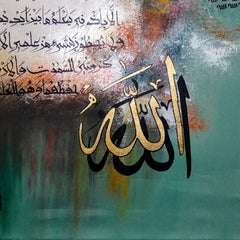 إلا بإذنه يعلم ما بين أيديهم
ولا يحيطون بشيء من علمه إلا
كرسيه السموت والأر
حفظهما وهو العلي
الله